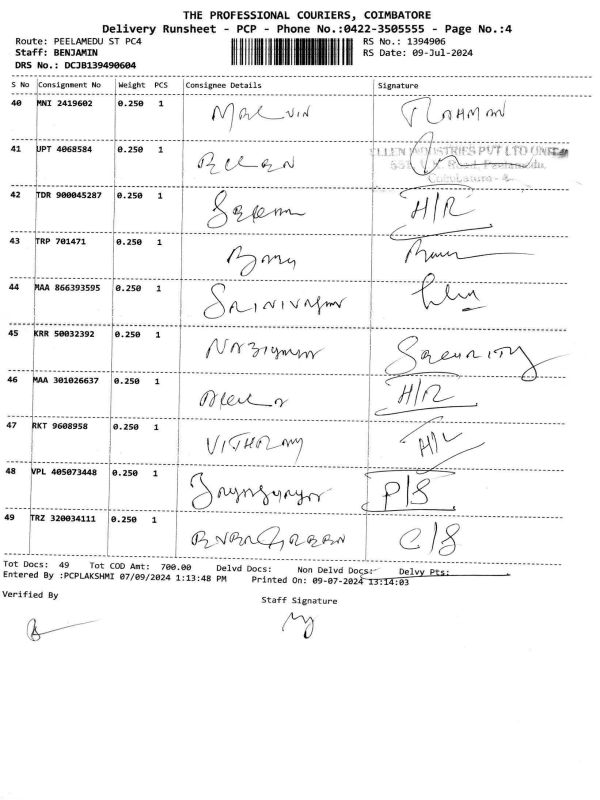 THE PROFESSIONAL COURIERS, COIMBATORE
Delivery Runsheet - PCP - Phone No.:0422-3505555 - Page No.:4
Route: PEELAMEDU ST PC4 RS No.: 1394906
Staff: BENJAMIN RS Date: 09-Jul-2024
DRS No.: DCJB139490604
S No Consignment No Weight PCS Consignee Details Signature
40 MNI 2419602 0.250 1 RAHMAN
41 UPT 4068584 0.250 1
ELLEN INDUSTRIES PVT LTD UNIT
Coimbatore - 4
42 TDR 900045287 0.250 1 H/R
43 TRP 701471 0.250 1
44 MAA 866393595 0.250 1
45 KRR 50032392 0.250 1 SECURITY
46 MAA 301026637 0.250 1 H/R
47 RKT 9608958 0.250 1
48 VPL 405073448 0.250 1 P/S
49 TRZ 320034111 0.250 1 EVERGREEN C/S
Tot Docs: 49 Tot COD Amt: 700.00 Delvd Docs: Non Delvd Docs: Delvy Pts:
Entered By :PCPLAKSHMI 07/09/2024 1:13:48 PM Printed On: 09-07-2024 13:14:03
Verified By Staff Signature